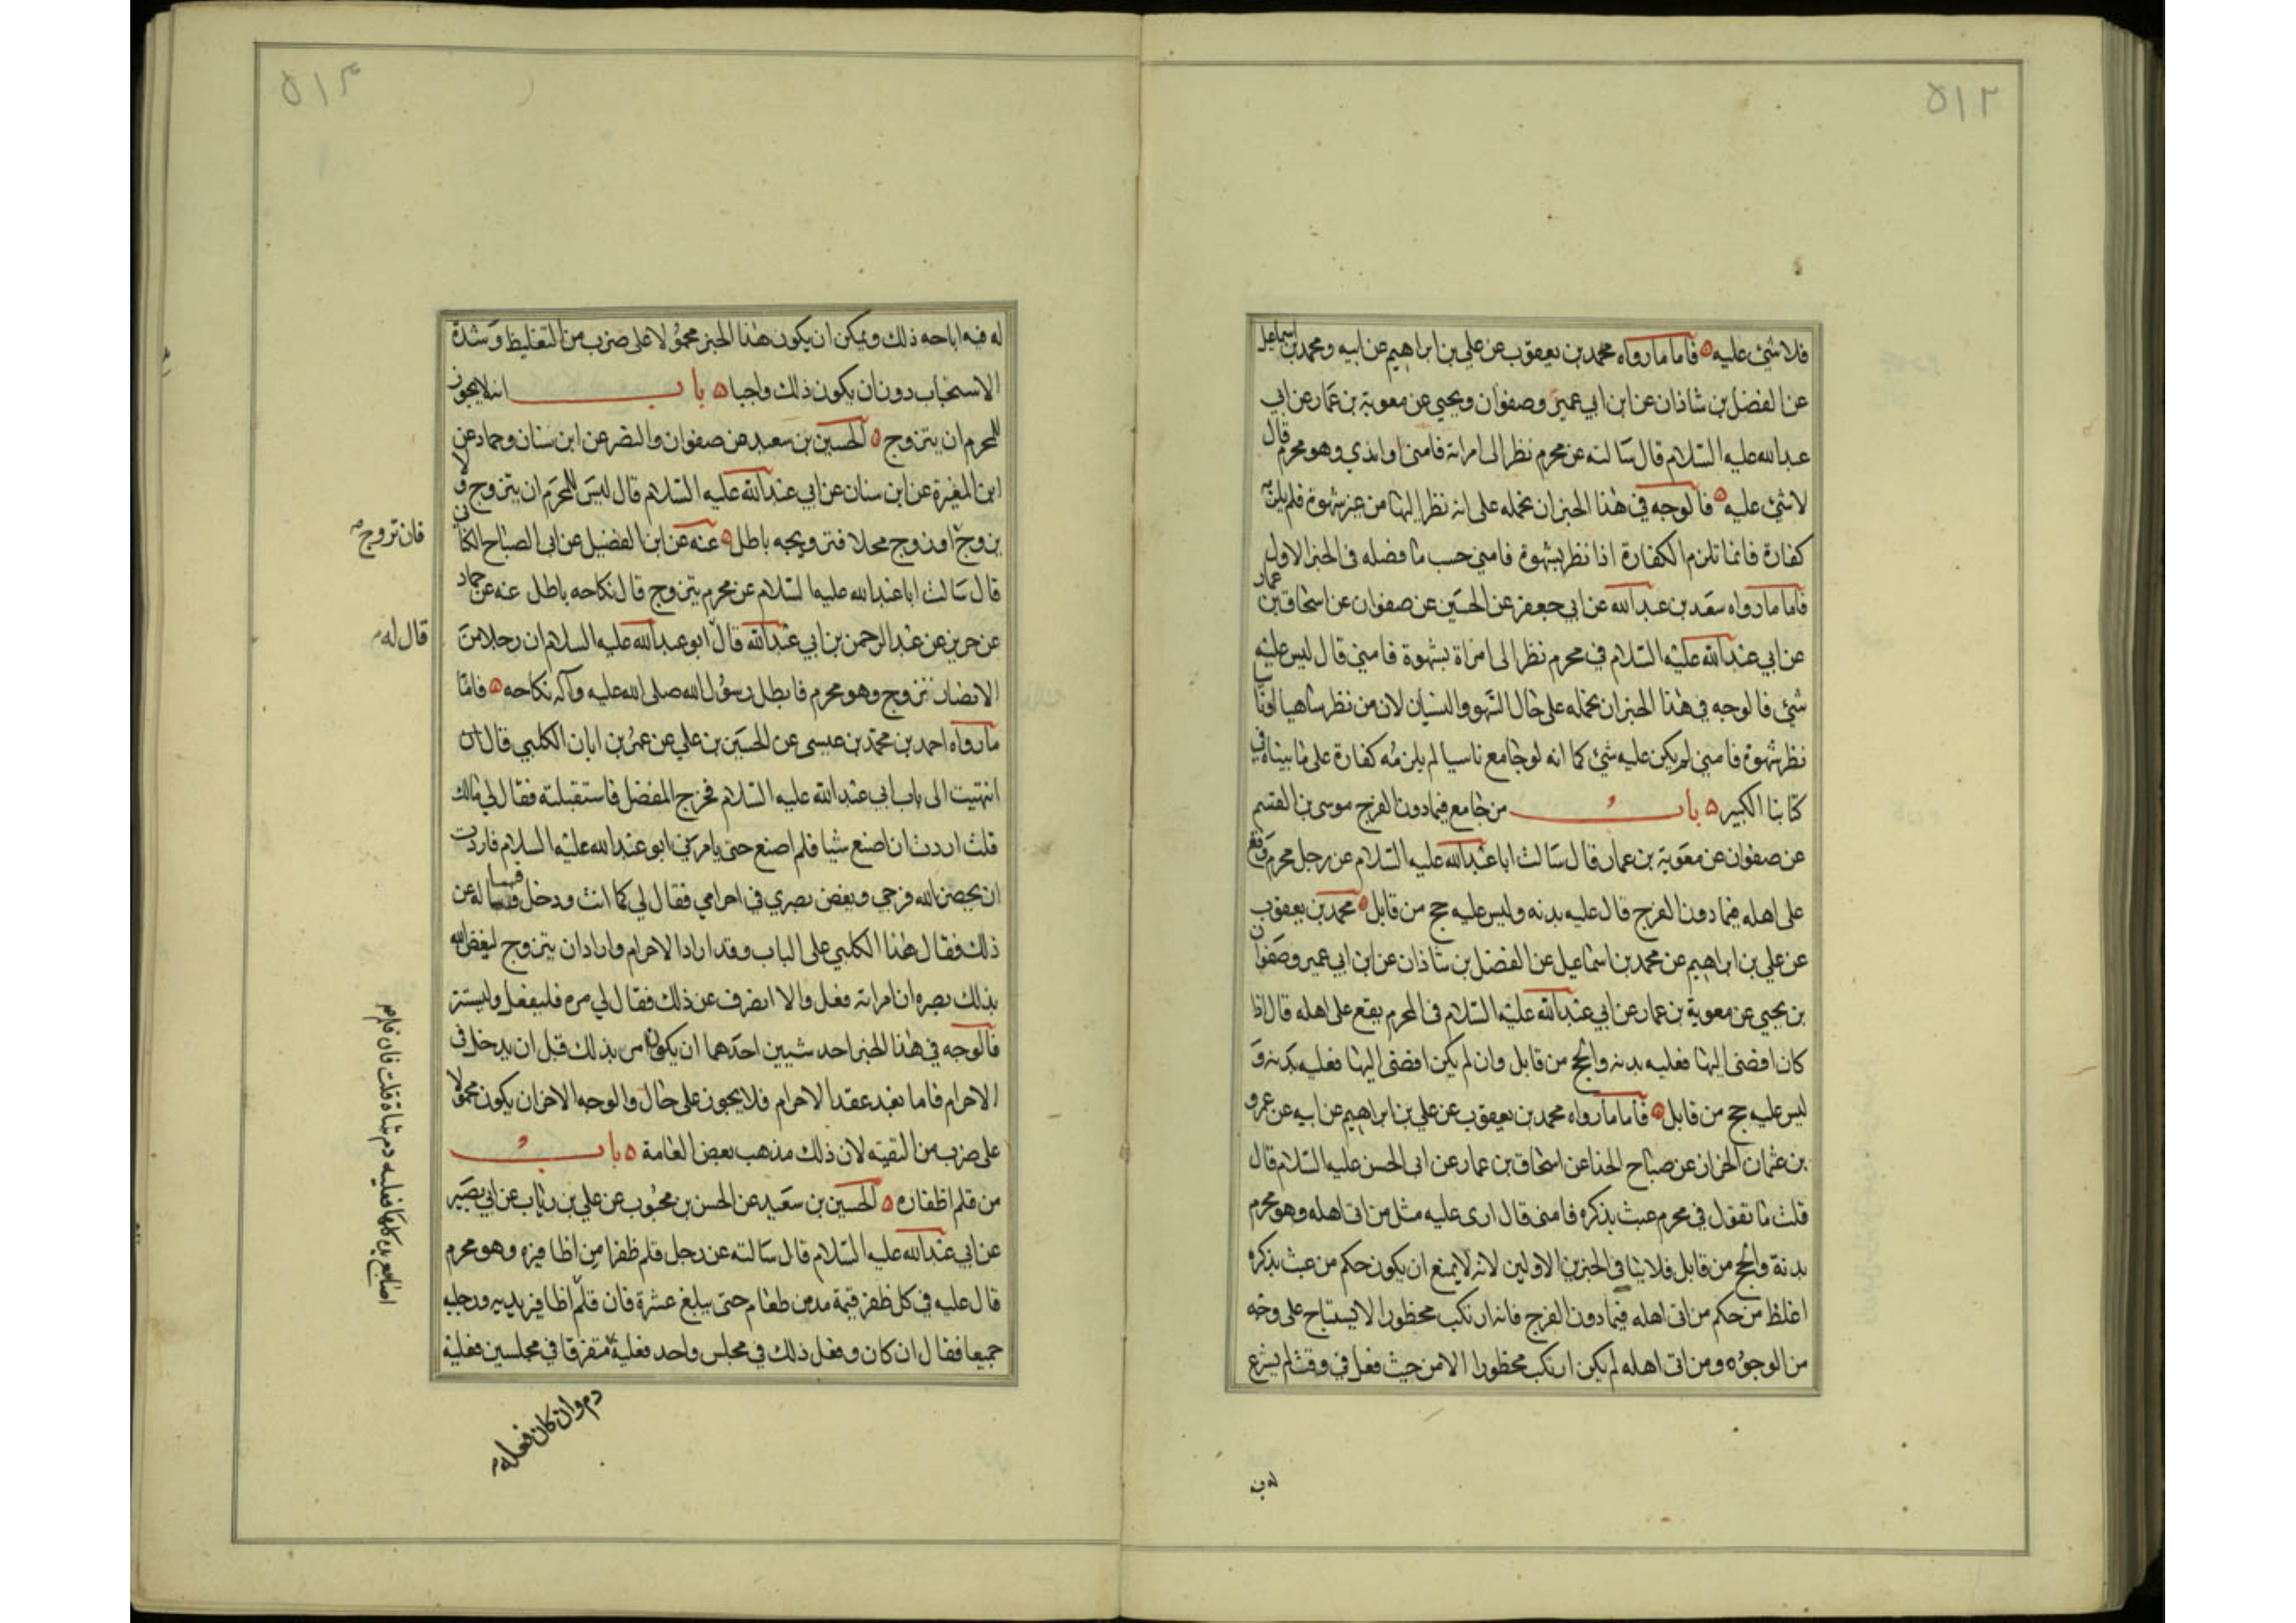 ٥١٢
فلا شئ عليه فاما ما رواه محمد بن يعقوب عن علي بن ابراهيم عن ابيه ومحمد بن اسماعيل
عن الفضل بن شاذان عن ابن ابي عمير وصفوان ويحيي عن معوية بن عمار عن ابي
عبد الله عليه السلام قال سالته عن محرم نظر الى امراته فامنى او امذي وهو محرم قال
لا شئ عليه فالوجه في هذا الخبر ان نحمله على انه نظر اليها من غير شهوة فلم يلزمه
كفارة فانما تلزم الكفارة اذا نظر بشهوة فامنى حسب ما فصله في الخبر الاول
فاما ما رواه سعد بن عبد الله عن ابي جعفر عن الحسين عن صفوان عن اسحاق بن عمار
عن ابي عبد الله عليه السلام في محرم نظر الى امراة بشهوة فامنى قال ليس عليه
شئ فالوجه في هذا الخبر ان نحمله على حال السهو والنسيان لان من نظر ساهيا او ناسيا
نظر شهوة فامنى لم يكن عليه شئ كما انه لو جامع ناسيا لم يلزمه كفارة على ما بيناه في
كتابنا الكبير باب من جامع فيما دون الفرج موسى بن القسم
عن صفوان عن معوية بن عمار قال سالت ابا عبد الله عليه السلام عن رجل محرم وقع
على اهله فيما دون الفرج قال عليه بدنه وليس عليه حج من قابل محمد بن يعقوب
عن علي بن ابراهيم عن محمد بن اسماعيل عن الفضل بن شاذان عن ابن ابي عمير وصفوان
بن يحيي عن معوية بن عمار عن ابي عبد الله عليه السلام في المحرم يقع على اهله قال اذا
كان افضى اليها فعليه بدنه والحج من قابل وان لم يكن افضى اليها فعليه بدنه و
ليس عليه حج من قابل فاما ما رواه محمد بن يعقوب عن علي بن ابراهيم عن ابيه عن عمرو
بن عثمان الخزاز عن صباح الحذا عن اسحاق بن عمار عن ابى الحسن عليه السلام قال
قلت ما تقول في محرم عبث بذكره فامنى قال ارى عليه مثل من اتى اهله وهو محرم
بدنة والحج من قابل فلا ينافي الخبرين الاولين لانه لا يمنع ان يكون حكم من عبث بذكره
اغلظ من حكم من اتى اهله فيما دون الفرج فانه ارتكب محظورا لا يستباح على وجه
من الوجوه ومن اتى اهله لم يكن ارتكب محظورا الا من حيث فعل في وقت لم يشرع
له فيه
٥١٣
له فيه اباحه ذلك ويمكن ان يكون هذا الخبر محمولا على ضرب من التغليظ وشدة
الاستحباب دون ان يكون ذلك واجبا باب انه لا يجوز
للمحرم ان يتزوج الحسين بن سعيد عن صفوان والنضر عن ابن سنان وحماد عن
ابن المغيرة عن ابن سنان عن ابي عبد الله عليه السلام قال ليس للمحرم ان يتزوج ولا
يزوج او زوج محلا فتزويجه باطل عنه عن ابن الفضيل عن ابى الصباح الكناني
فان تزوج
قال سالت ابا عبد الله عليه السلام عن محرم يتزوج قال نكاحه باطل عنه عن حماد
عن حريز عن عبد الرحمن بن ابي عبد الله قال ابو عبد الله عليه السلام ان رجلا من
قال له
الانصار تزوج وهو محرم فابطل رسول الله صلى الله عليه وآله نكاحه فاما
ما رواه احمد بن محمد بن عيسى عن الحسين بن علي عن عمر بن ابان الكلبي قال
انتهيت الى باب ابي عبد الله عليه السلام فخرج المفضل فاستقبلته فقال لي مالك
قلت اردت ان اصنع شيا فلم اصنع حتى يامرني ابو عبد الله عليه السلام فاردت
ان يحصن الله فرجي ويغض بصري في احرامي فقال لي كما انت ودخل فساله عن
ذلك فقال هذا الكلبي على الباب وقد اراد الاحرام واراد ان يتزوج ليغض الله
بذلك بصره ان امرته فعل والا انصرف عن ذلك فقال لي مره فليفعل وليستتر
فالوجه في هذا الخبر احد شيين احدهما ان يكون امر بذلك قبل ان يدخل في
الاحرام فاما بعد عقد الاحرام فلا يجوز على حال والوجه الاخر ان يكون محمولا
على ضرب من التقيه لان ذلك مذهب بعض العامة باب
من قلم اظفاره الحسين بن سعيد عن الحسن بن محبوب عن علي بن رئاب عن ابي بصير
عن ابي عبد الله عليه السلام قال سالته عن رجل قلم ظفرا من اظافيره وهو محرم
قال عليه في كل ظفر قيمة مد من طعام حتى يبلغ عشرة فان قلم اظافيز يديه ورجليه
جميعا فقال ان كان وفعل ذلك في مجلس واحد فعليه متفرقا في مجلسين فعليه
اصابع يديه كلها فعليه دم شاة قلت فان قلم
دم وان كان فعله